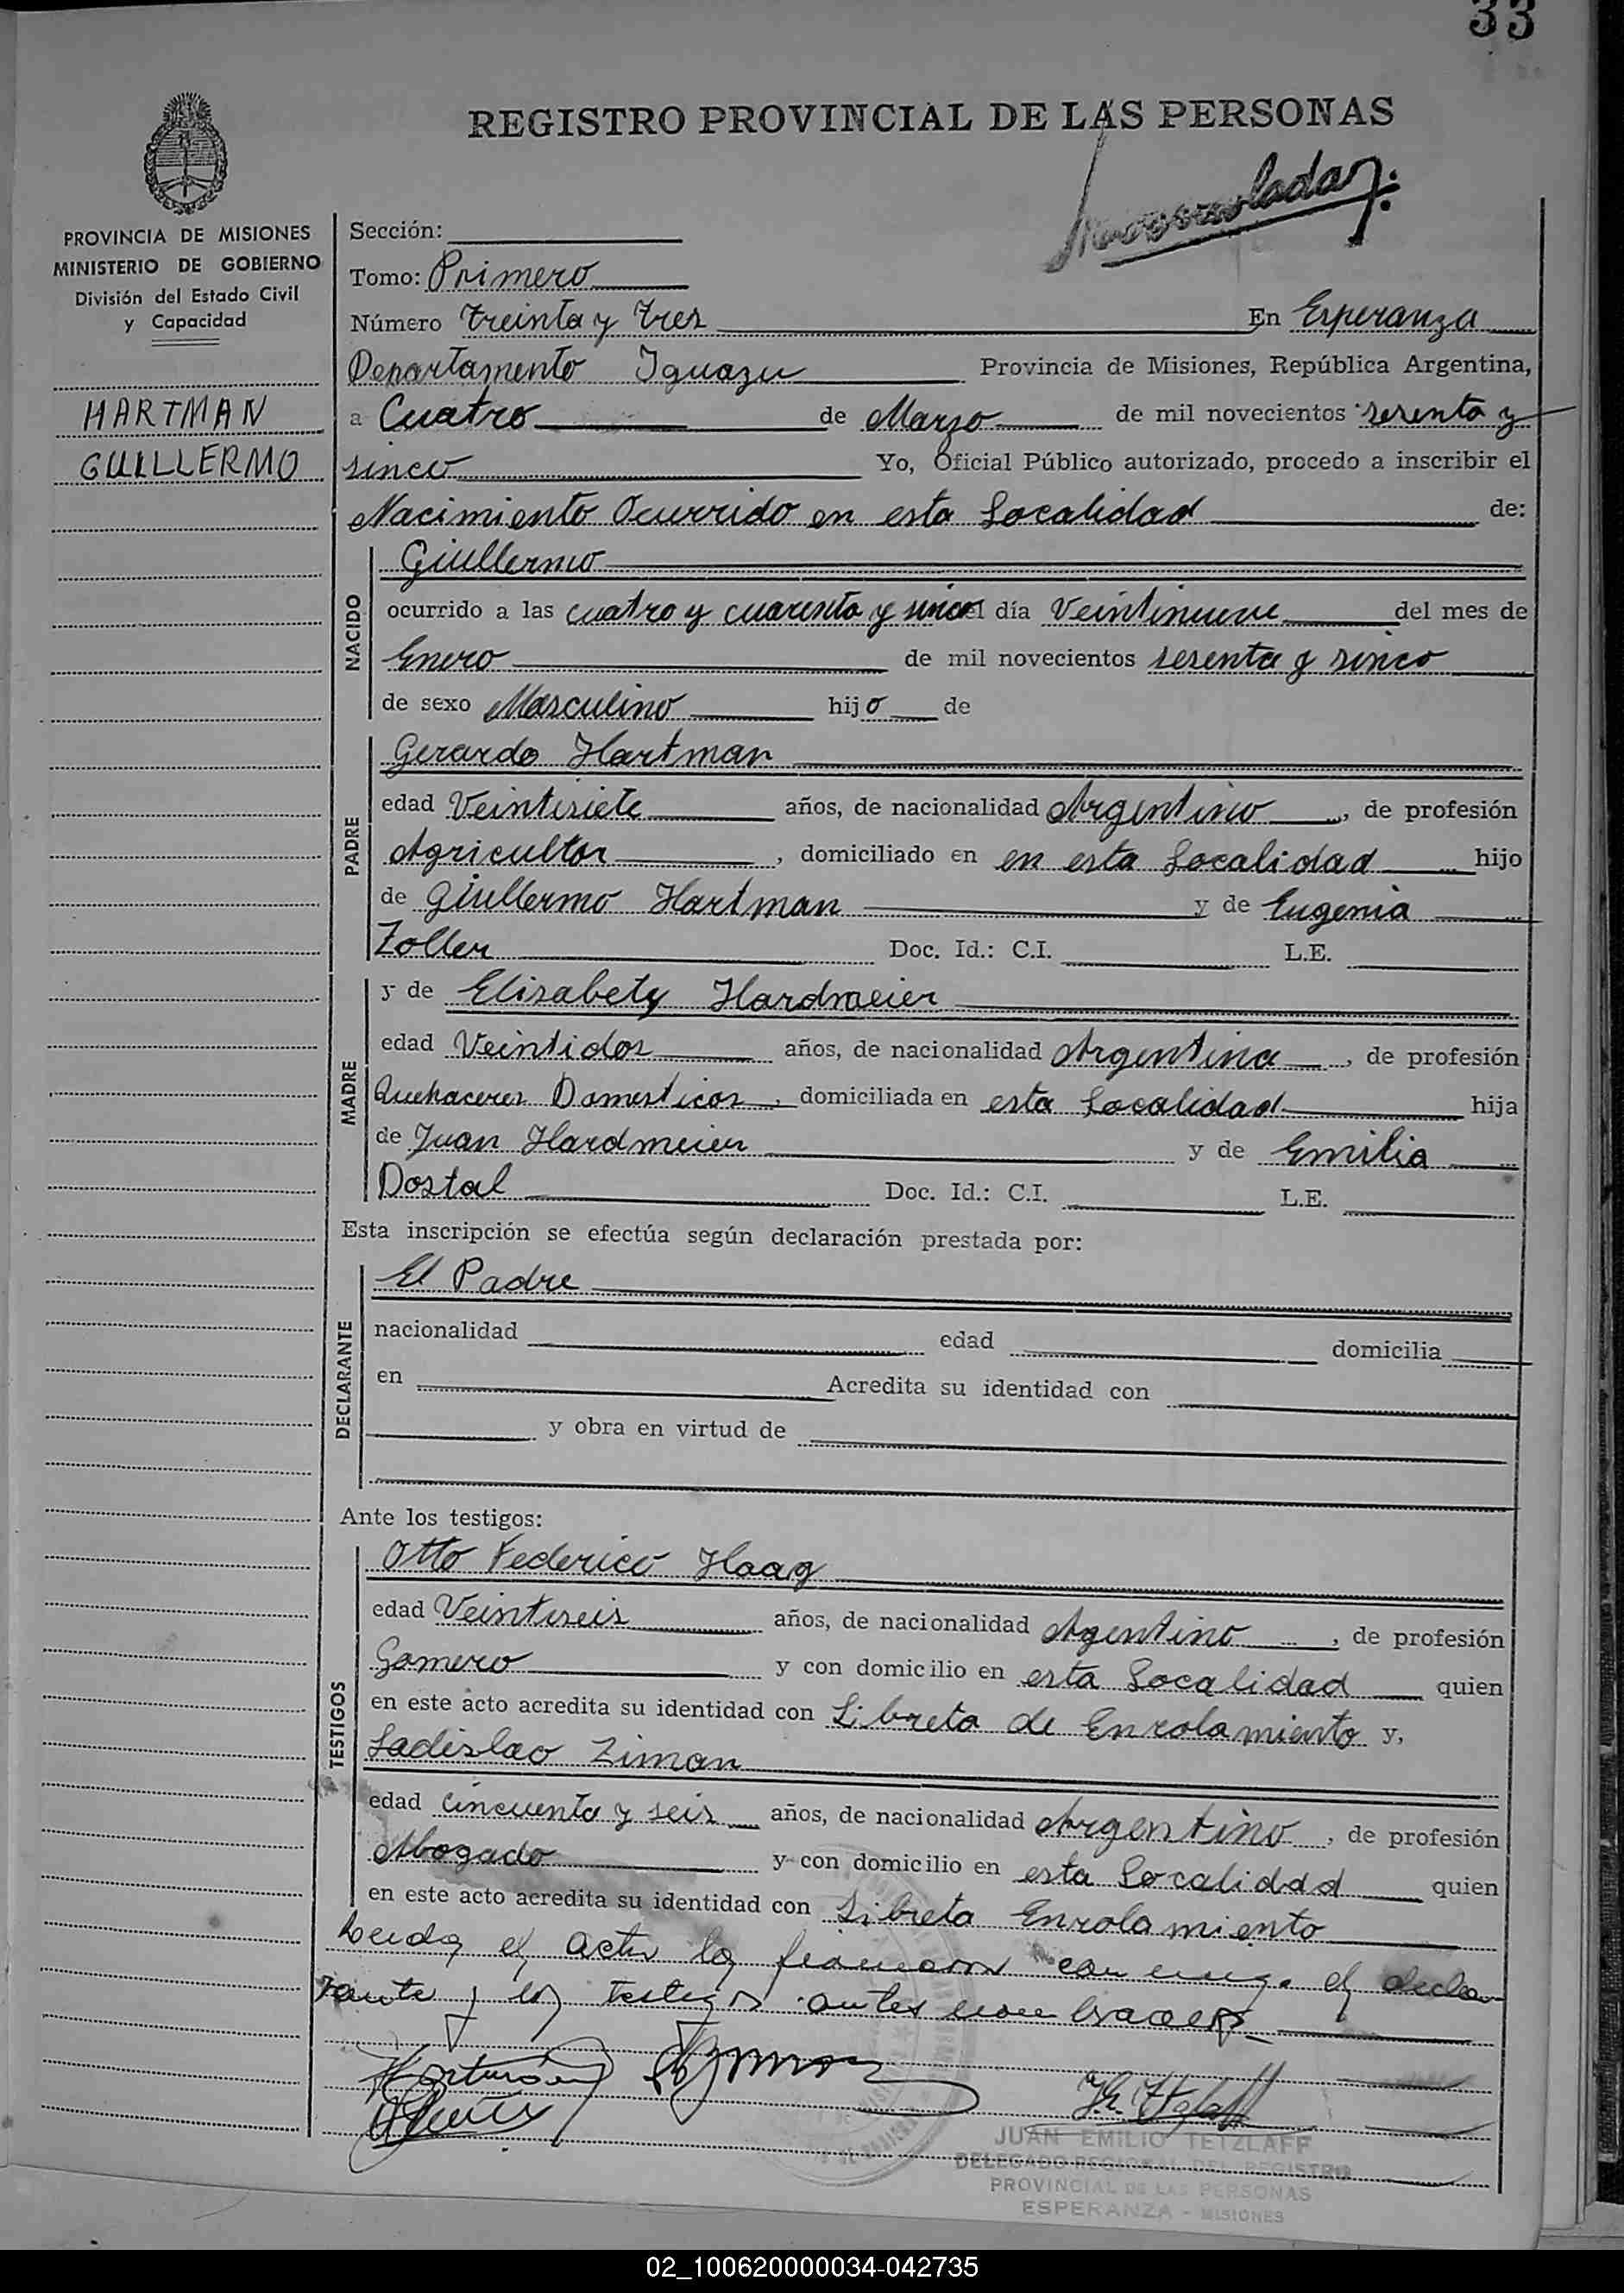 33
REGISTRO PROVINCIAL DE LAS PERSONAS
PROVINCIA DE MISIONES
MINISTERIO DE GOBIERNO
División del Estado Civil
y Capacidad
HARTMAN
GUILLERMO
Sección:
Tomo: Primero
Número treinta y tres En Esperanza
Departamento Iguazu Provincia de Misiones, República Argentina,
a Cuatro de Marzo de mil novecientos sesenta y
sinco Yo, Oficial Público autorizado, procedo a inscribir el
Nacimiento Ocurrido en esta Localidad de:
NACIDO
Giullermo
ocurrido a las cuatro y cuarenta y sinco el día Veintinueve del mes de
Enero de mil novecientos sesenta y sinco
de sexo Masculino hijo de
PADRE
Gerardo Hartman
edad Veintisiete años, de nacionalidad Argentino, de profesión
Agricultor, domiciliado en en esta Localidad hijo
de Giullermo Hartman y de Eugenia
Zoller Doc. Id.: C.I. L.E.
MADRE
y de Elisabety Hardmeier
edad Veintidos años, de nacionalidad Argentina, de profesión
Quehaceres Domesticos, domiciliada en esta Localidad hija
de Juan Hardmeier y de Emilia
Dostal Doc. Id.: C.I. L.E.
Esta inscripción se efectúa según declaración prestada por:
DECLARANTE
El Padre
nacionalidad edad domicilia
en Acredita su identidad con
y obra en virtud de
Ante los testigos:
TESTIGOS
Otto Federico Haag
edad Veintiseis años, de nacionalidad Agentino, de profesión
Gomero y con domicilio en esta Localidad quien
en este acto acredita su identidad con Libreta de Enrolamiento y,
Ladislao Ziman
edad cincuenta y seis años, de nacionalidad Argentino, de profesión
Abogado y con domicilio en esta Localidad quien
en este acto acredita su identidad con Libreta Enrolamiento
Leida el acta la firmaron el decla-
rante y los testigos antes
JUAN EMILIO TETZLAFF
DELEGADO REGIONAL DEL REGISTRO
PROVINCIAL DE LAS PERSONAS
ESPERANZA - MISIONES
02_100620000034-042735